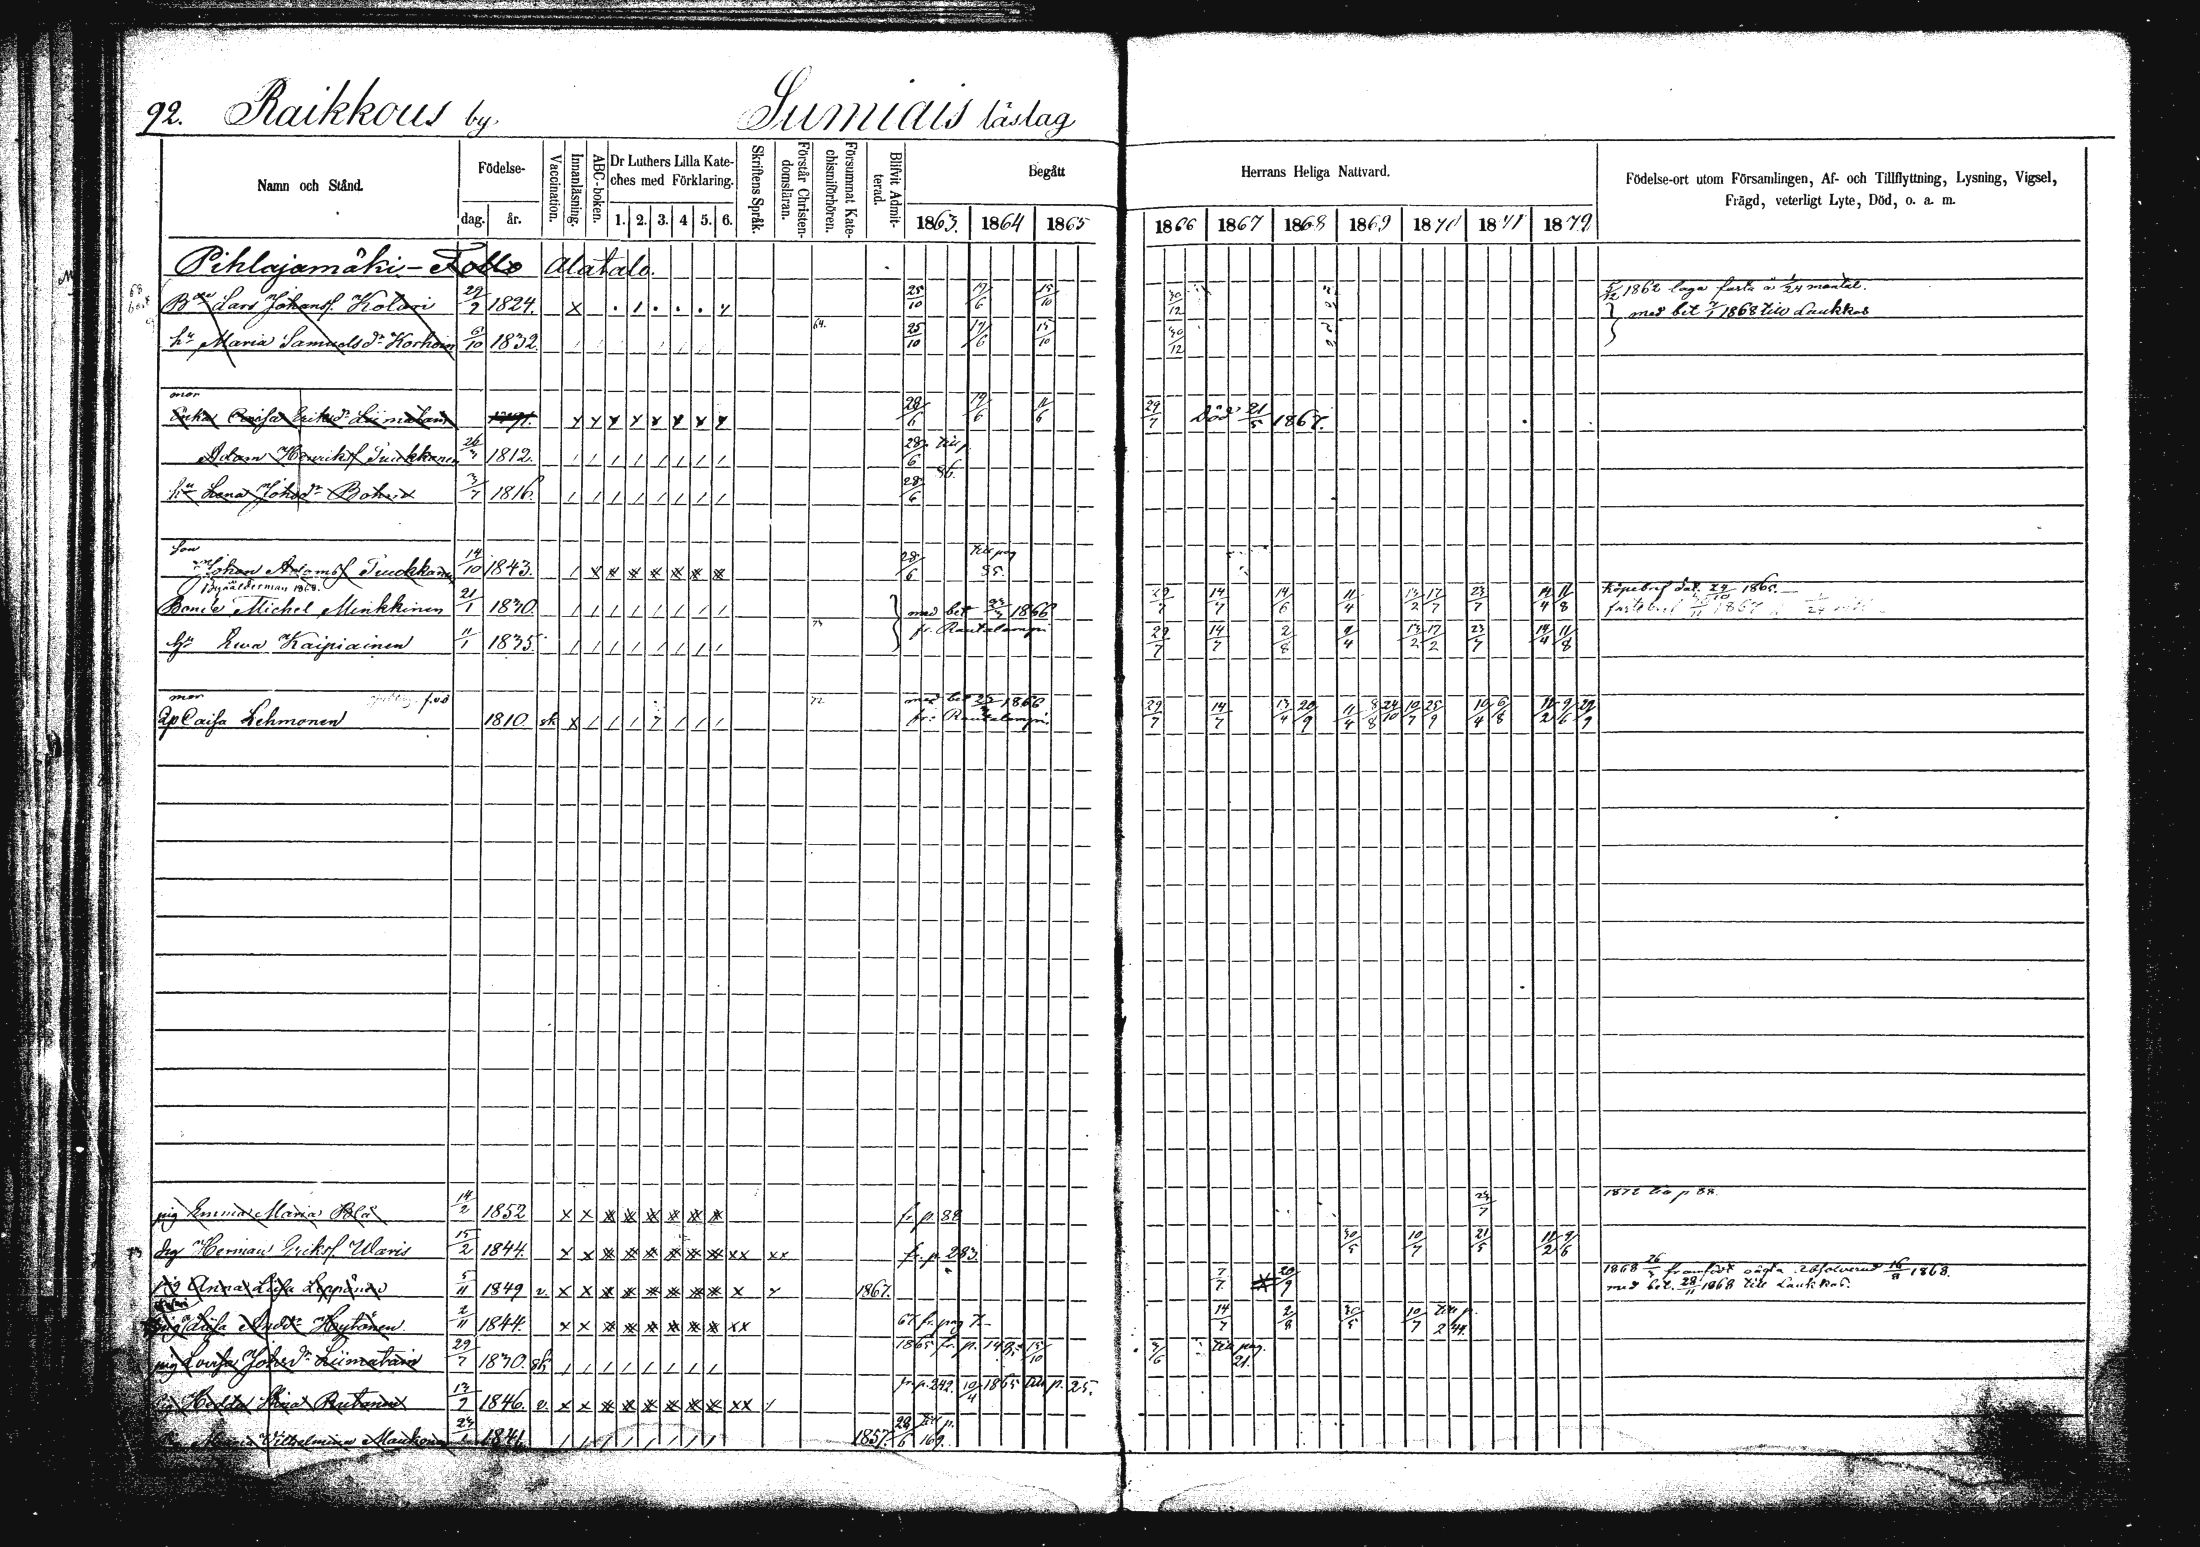 92. Raikkous by. Sumiais läslag
Namn och Stånd.
Födelse-
dag. år.
Vaccination.
Innanläsning.
ABC-boken.
Dr Luthers Lilla Kate-
ches med Förklaring.
1. 2. 3. 4 5. 6.
Skriftens Språk.
Förstår Christen-
domsläran.
Försummat Kate-
chismiförhören.
Blifvit Admit-
terad.
Begått Herrans Heliga Nattvard.
1863. 1864 1865 1866 1867 1868 1869 1870 1871 1872
Födelse-ort utom Församlingen, Af- och Tillflyttning, Lysning, Vigsel,
Frägd, veterligt Lyte, Död, o. a. m.
Pihlajamäki - Alatalo.
Lars Johansf. Kolari 1824. 25/10 17/6 15/10 30/12 5/12 1862 laga fasta å 1/24 mantal.
med bet 1868 till Laukkas
hu Maria Samuelsdr Korhoin 6/10 1832. 64. 25/10 17/6 15/10 30/12
mor
Caisa Eriksdr Liimatain 28/6 19/6 11/6 29/7 Död 21/5 1867.
Adam Henriksf Tuukkanen 1812. 28/6 till p
86.
hu Lena Johsdr 3/7 1816 28/6
Son
Johan Adamsf Tuukkanen 14/10 1843. 28/6 till pag
85.
Byaålderman 1868.
Bonde Michel Minkkinen 21/1 1830. med bet 1866 29/7 14/7 14/6 11/4 13/2 17/7 23/7 14/4 11/8 Köpebref dat. 24/10 1865.
fr. Rautalampi fastebref 1867
hu Ewa Kaipiainen 11/1 1835. 73 29/7 14/7 2/8 11/4 13/2 17/2 23/7 14/4 11/8
mor
Caisa Lehmonen 1810. sk 72 med bet 1866
fr: Rautalampi. 29/7 14/7 13/4 20/9 11/4 8/8 24/10 10/7 25/9 10/4 6/8 12/2 9/6 29/9
pig Emma Maria Blå 14/2 1852 fr. p. 88 23/7 1872 till p 88.
drg Herman Eriksf Waris 15/2 1844. fr. p. 283 30/5 10/7 21/5 11/2 9/6
pig Anna Lisa Leppänen 5/11 1849 v. 1867. 7/7 20/9 1868 26/ framfödt oägta. Absolverad 16/8 1868.
med bet. 28/11 1868 till Laukkas.
pig Lisa Andrdr Hytönen 2/11 1844. 67 fr. pag 14/7 2/8 30/5 10/7 till p.
244.
pig Lovisa Johsdr Liimatain 29/7 1830. sk 1865 fr. p. 15/10 till pag.
21.
pig Hedda Stina Rutanen 13/ 1846. v. fr. p. 242. 10/4 1865 till p. 25.
Maria Vilhelmina 1841. 1857. 28/6 till p.
169.